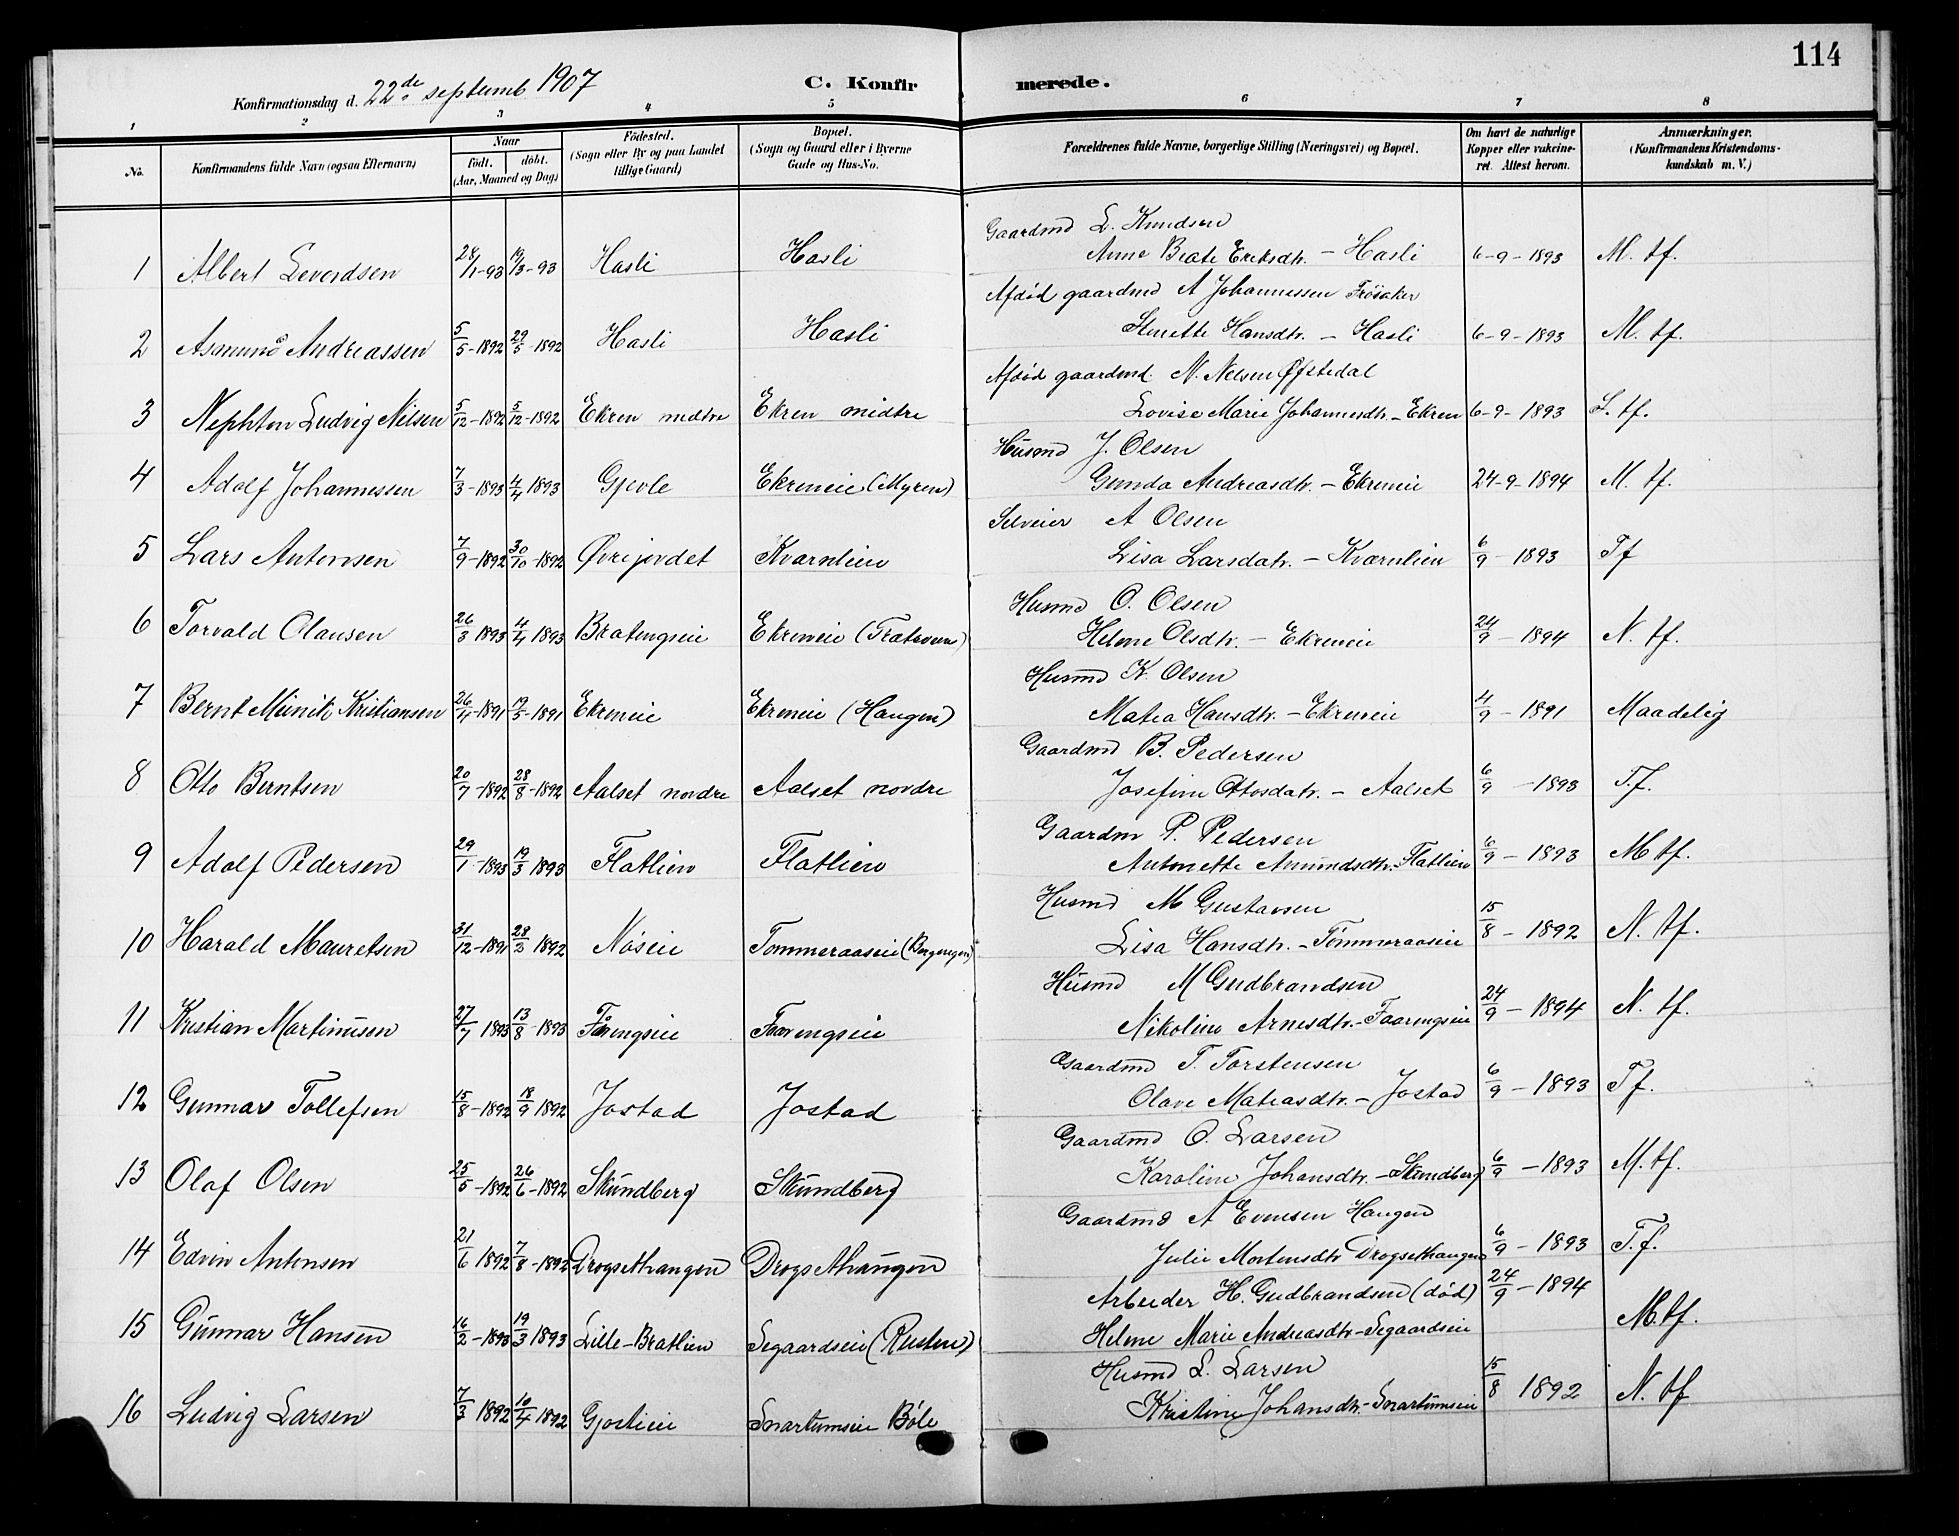 114
Konfirmationsdag d. 22de septemb 1907
C. Konfirmerede.
1 2 3 4 5 6 7 8
No.
Konfirmandens fulde Navn (ogsaa Efternavn)
Naar
født. døbt.
(Aar, Maaned og Dag)
Fødested.
(Sogn eller By og paa Landet
tillige Gaard)
Bopæl.
(Sogn og Gaard eller i Byerne
Gade og Hus-No.
Forældrenes fulde Navne, borgerlige Stilling (Næringsvei) og Bopæl.
Om havt de naturlige
Kopper eller vakcine-
ret. Attest herom.
Anmærkninger.
(Konfirmandens Kristendoms-
kundskab m. V.)
Gaardmd L. Knudsen
1 Albert Leverdsen 28/1-93 19/3-93 Hasli Hasli Anne Beate Eriksdtr. - Hasli 6-9-1893 M. tf.
Afdød gaardmd A Johannessen Frøsaker
2 Asmund Andreassen 5/5-1892 29/5-1892 Hasli Hasli Hansdtr. - Hasli 6-9-1893 M. tf.
Afdød gaardmd. N. Nelsen Øfstedal
3 Nephton Ludvig Nilsen 5/12-1892 5/12-1892 Ekren midtre Ekren midtre Lovise Marie Johannesdtr. - Ekren 6-9-1893 S. tf.
Husmd J. Olsen
4 Adolf Johannessen 7/3-1893 4/4 1893 Gjevle Ekreneie (Myren) Gunda Andreasdtr. - Ekreneie 24-9-1894 M. tf.
Selveier A Olsen
5 Lars Antonsen 7/9-1892 30/10-1892 Øvrejordet Kvarnlien Lisa Larsdatr. - Kværnlien 6/9 - 1893 Tf
Husmd O. Olsen
6 Torvald Olausen 26/3 1893 4/4 1893 Bratengseie Ekreneie Helene Olsdtr. - Ekreneie 24/9 - 1894 N. tf.
Husmd K. Olsen
7 Bernt Meinik Kristiansen 26/4-1891 19/5-1891 Ekreneie Ekreneie (Haugen) Matea Hansdtr. - Ekreneie 4/9 - 1891 Maadelig
Gaardmd B. Pedersen
8 Otto Berntsen 20/7-1892 28/8-1892 Aalset nordre Aalset nordre Josefine Ottosdatr. - Aalset 6/9 - 1893 T.f.
Gaardm P. Pedersen
9 Adolf Pedersen 29/1-1893 19/3 1893 Flatlien Flatlien Antonette Amundsdtr. Flatlien 6/9 - 1893 M tf.
Husmd M Gustavsen
10 Harald Mauretsen 31/12-1891 28/3 1892 Nøseie Tommeraaseie (Borgengen) Lisa Hansdtr. - Tømmeraaseie 15/8 - 1892 N. tf.
Husmd M Gudbrandsen
11 Kristian Martinusen 27/7 1893 13/8-1893 Faarengseie Faarengseie Nikoline Arnesdtr. - Faarengseie 24/9 - 1894 N. tf.
Gaardmd T. Torstensen
12 Gunnar Tollefsen 15/8-1892 18/9 1892 Jostad Jostad Olave Mateasdtr. - Jostad 6/9 - 1893 Tf.
Gaardmd O. Larsen
13 Olaf Olsen 25/5-1892 26/6-1892 Skundberg Skundberg Karoline Johansdtr. - Skundberg 6/9 - 1893 M. tf.
Gaardmd A Evensen Haugen
14 Edvin Antonsen 21/6 1892 7/8-1892 Drogsethaugen Drogsethaugen Julie Mortensdtr Drogsethaugen 6/9 - 1893 T.f.
Arbeider H. Gudbrandsen (død) 24/9 - 1894
15 Gunnar Hansen 16/2-1893 19/3 1893 Lille-Bratlien Segaardseie (Rusten) Helene Marie Andreasdtr - Segaardseie M. tf.
Husmd L. Larsen
16 Ludvig Larsen 7/3 1892 10/4 1892 Gjøstieie Snartumseie Bøle Kristine Johansdtr. - Snartumseie 15/8 1892 N. tf